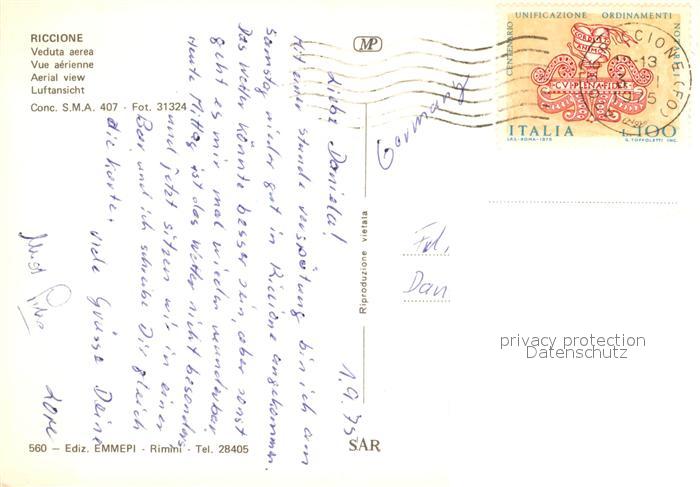 RICCIONE
Veduta aerea
Vue aérienne
Aerial view
Luftansicht
Conc. S.M.A. 407 - Fot. 31324
MP
CENTENARIO UNIFICAZIONE ORDINAMENTI NOTARILI
CVI PLENA FIDES
ITALIA L.100
I.P.S.-ROMA-1975 G. TOFFOLETTI INC.
RICCIONE (FO)
Germany
1.9.75
Liebe Daniela!
Mit einer stunde verspätung bin ich am
Samstag wieder gut in Riccione angekommen.
Das Wetter könnte besser sein, aber sonst
geht es mir mal wieder wunderbar.
Heute Mittag ist das Wetter nicht besonders
und jetzt sitzen wir in einer
Bar und ich schreibe Dir gleich
die Karte. viele Grüsse Deine
Lore
Riproduzione vietata
Frl.
Dan
privacy protection
Datenschutz
560 - Ediz. EMMEPI - Rimini - Tel. 28405
SAR